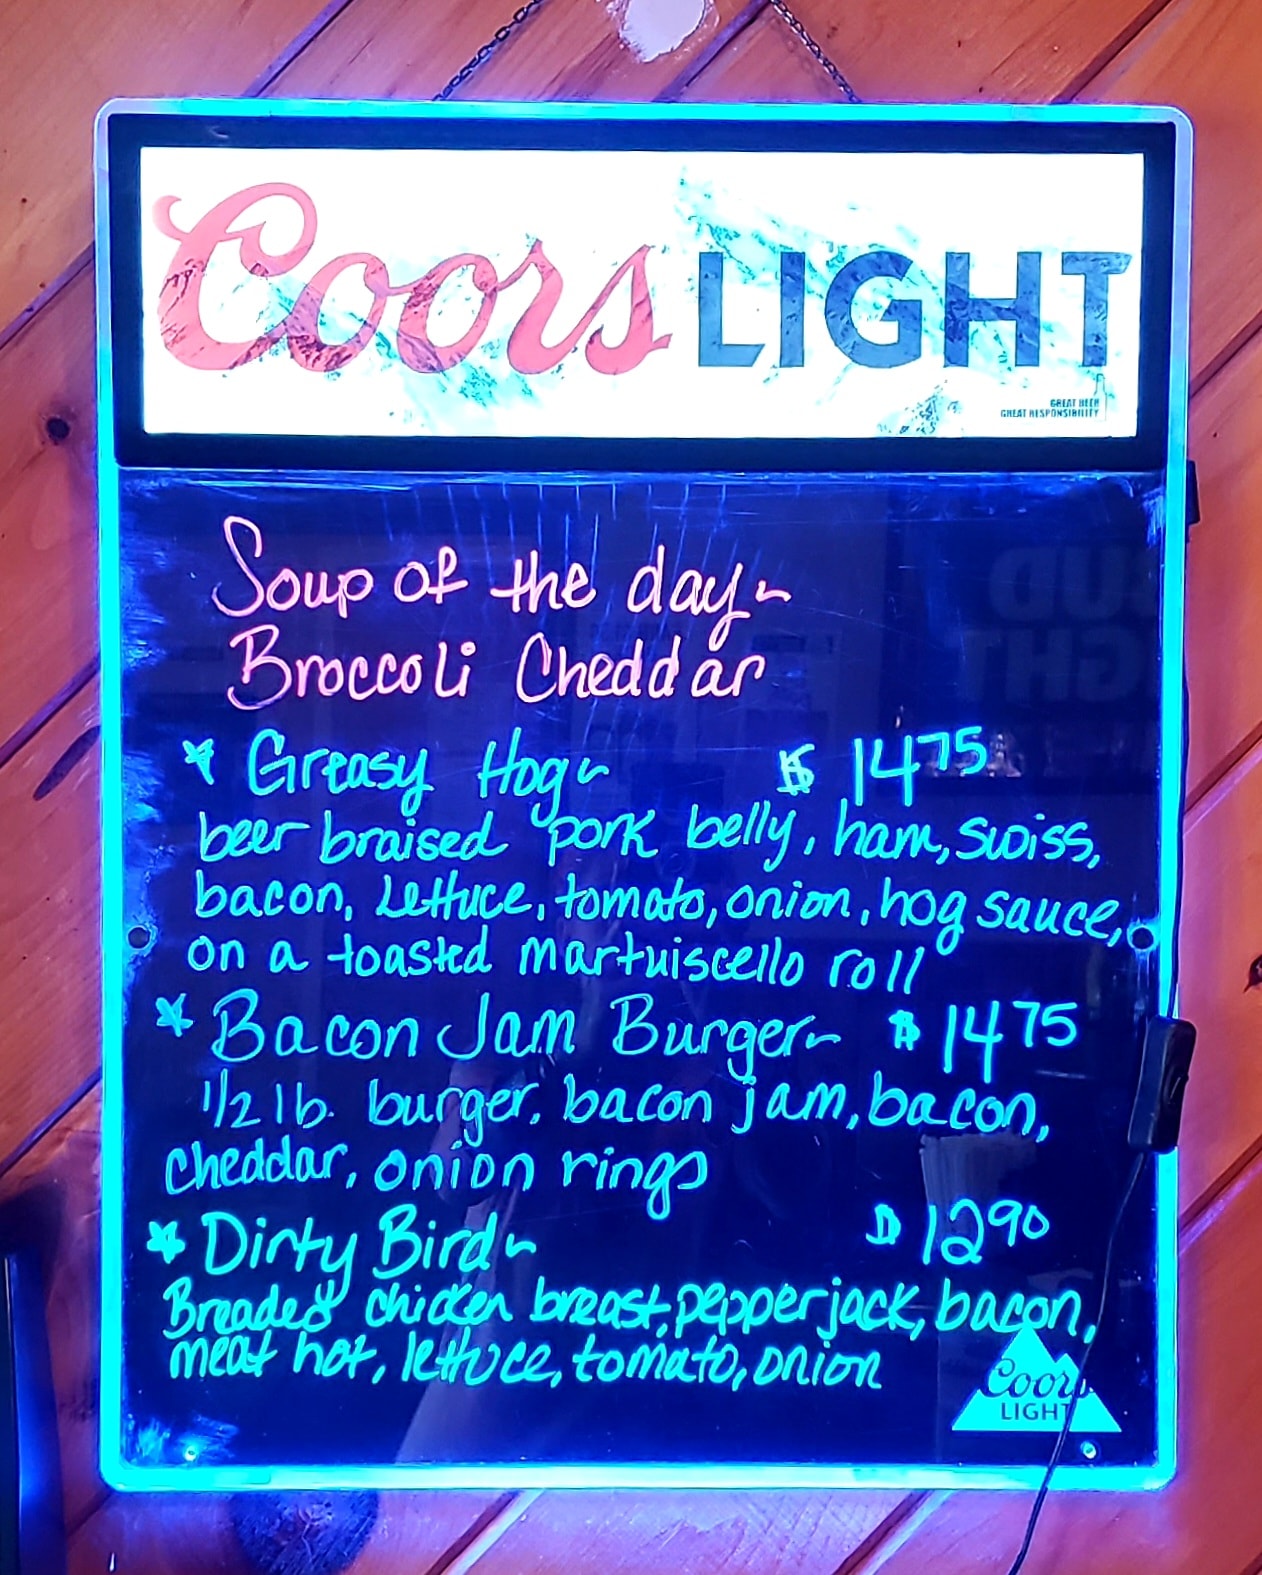 Coors LIGHT
GREAT BEER
GREAT RESPONSIBILITY
Soup of the day~
Broccoli Cheddar
* Greasy Hog~ $ 14 75
beer braised pork belly, ham, swiss,
bacon, lettuce, tomato, onion, hog sauce,
on a toasted martuiscello roll
* Bacon Jam Burger~ $ 14 75
1/2 lb. burger, bacon jam, bacon,
cheddar, onion rings
* Dirty Bird~ $ 12 90
Breaded chicken breast, pepperjack, bacon,
meat hot, lettuce, tomato, onion
Coors
LIGHT